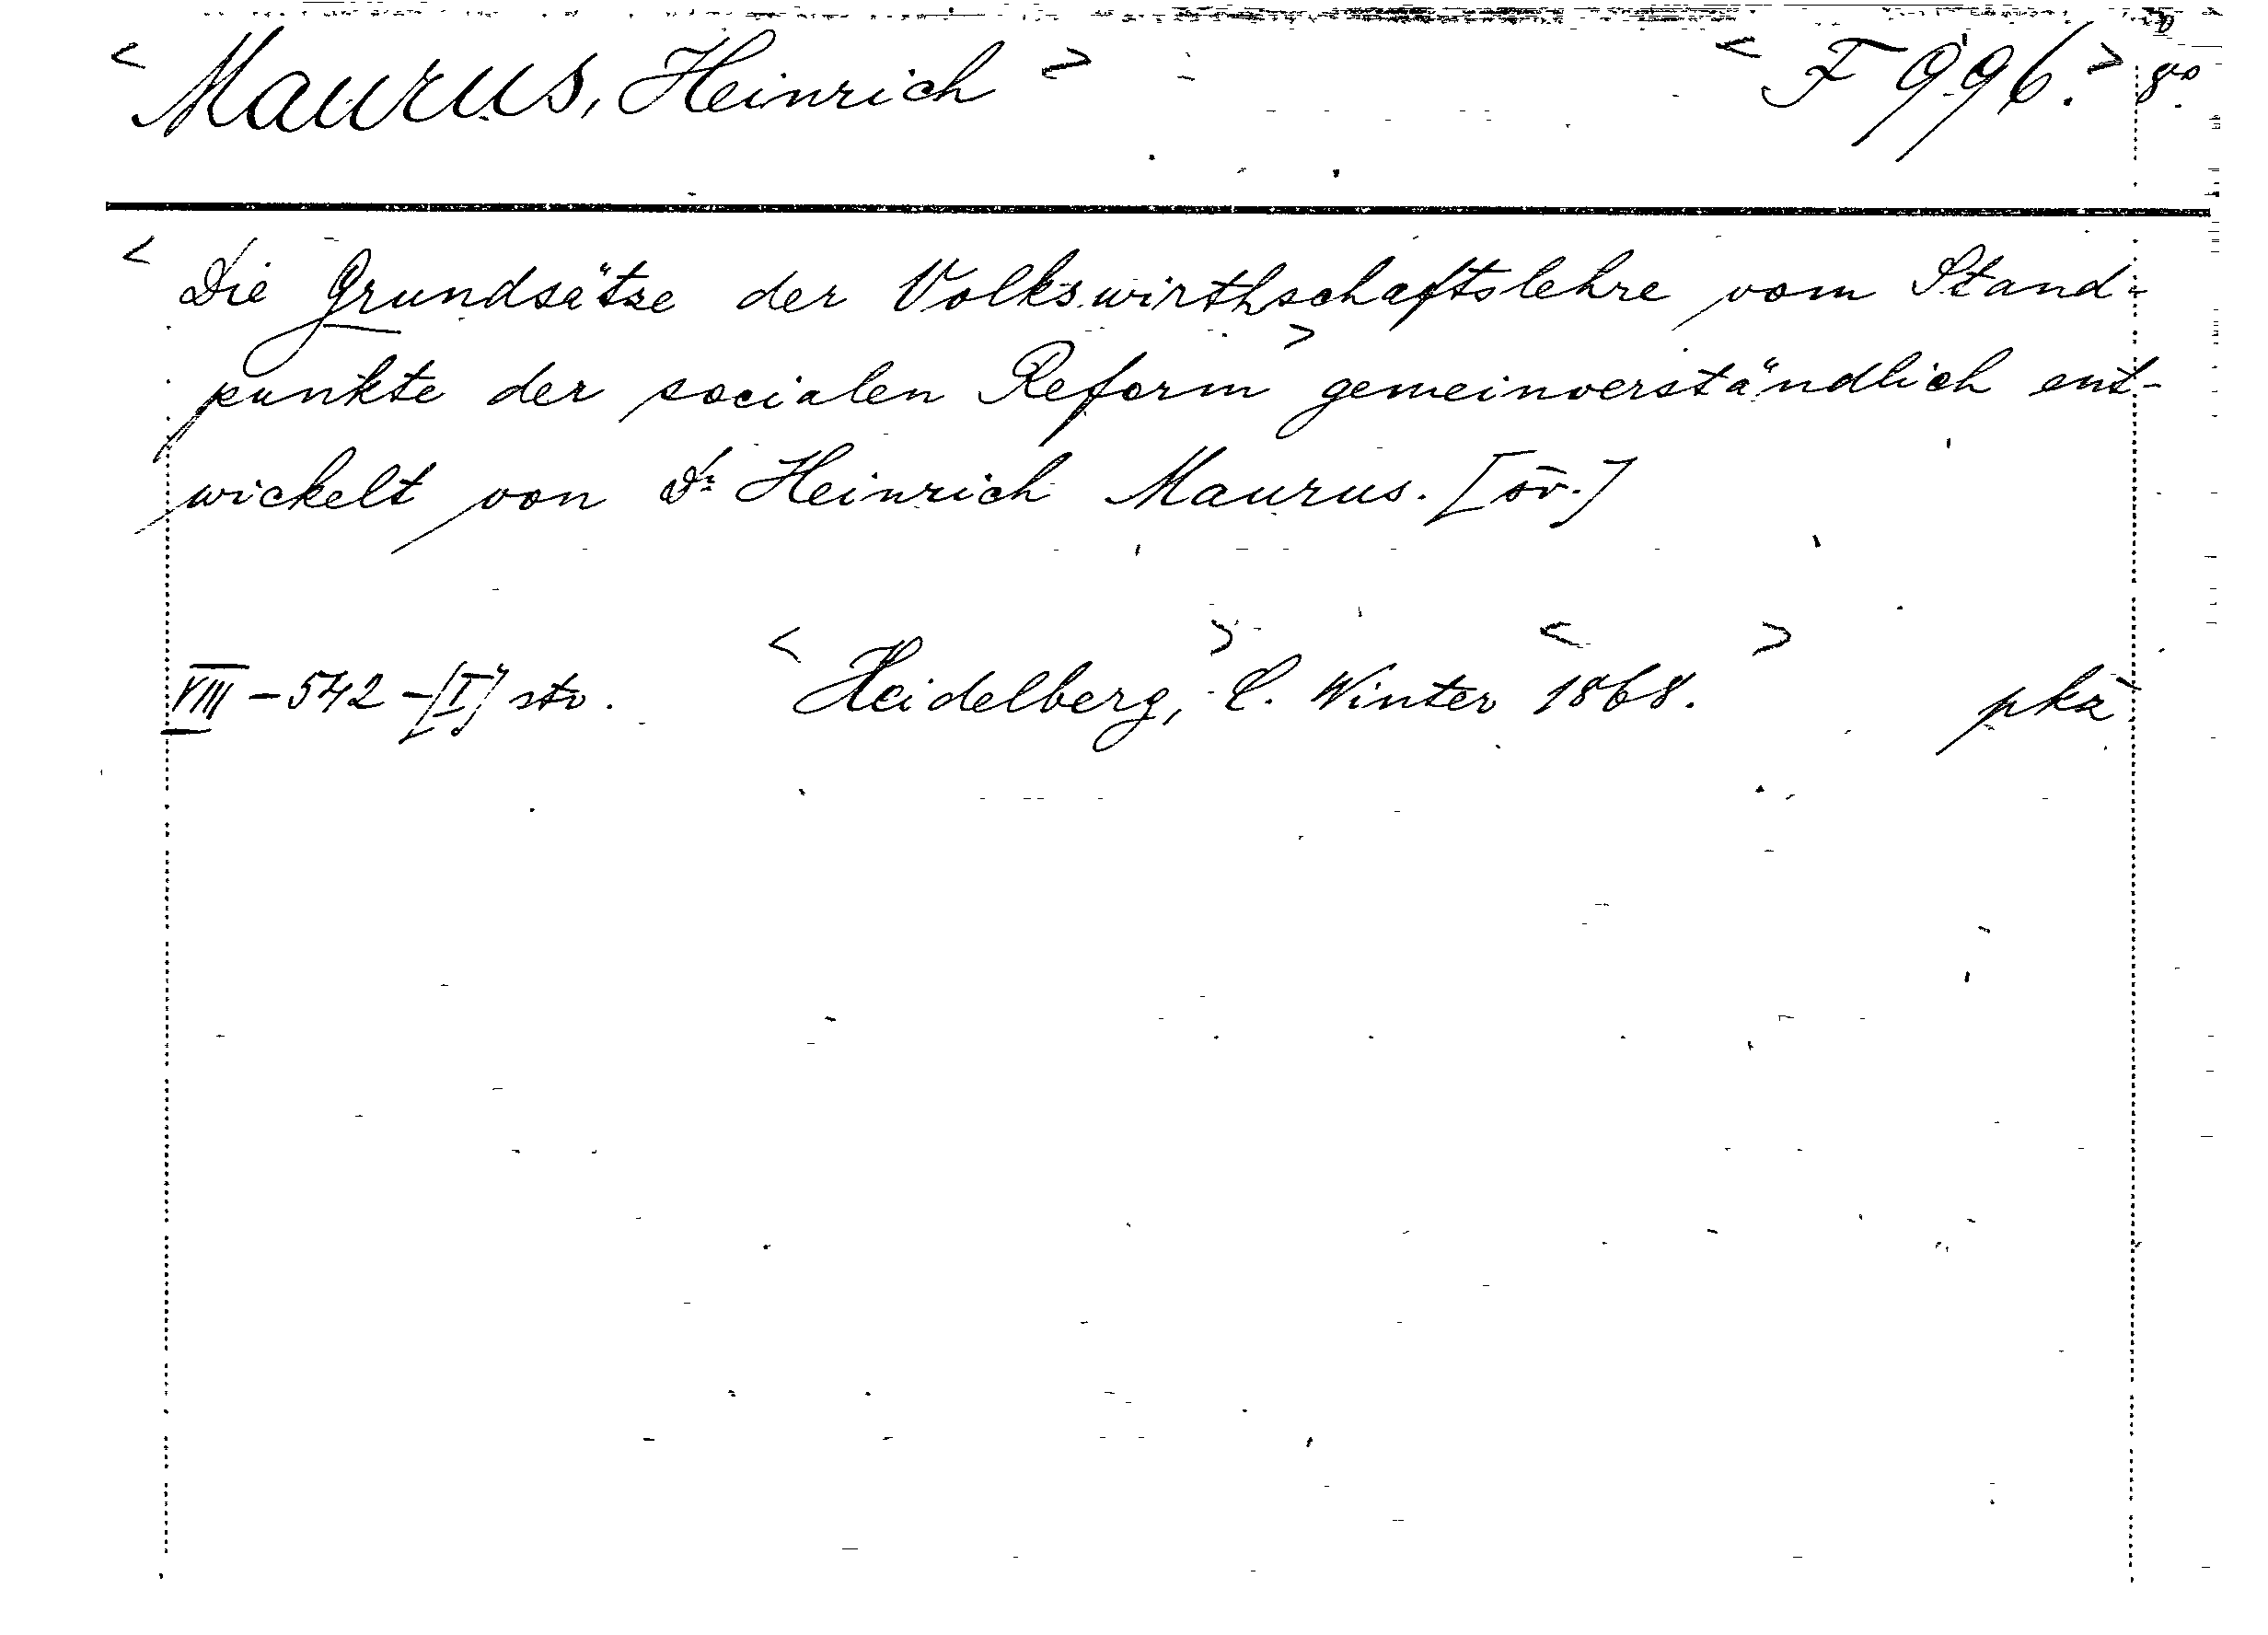 < Maurus, Heinrich > < F 996. > 8º
< Die Grundsätze der Volkswirthschaftslehre vom Stand-
punkte der socialen Reform > gemeinverständlich ent-
wickelt von Dr Heinrich Maurus. [sv.]
VIII - 542 - [I] str. < Heidelberg, > C. Winter < 1868. > pkz